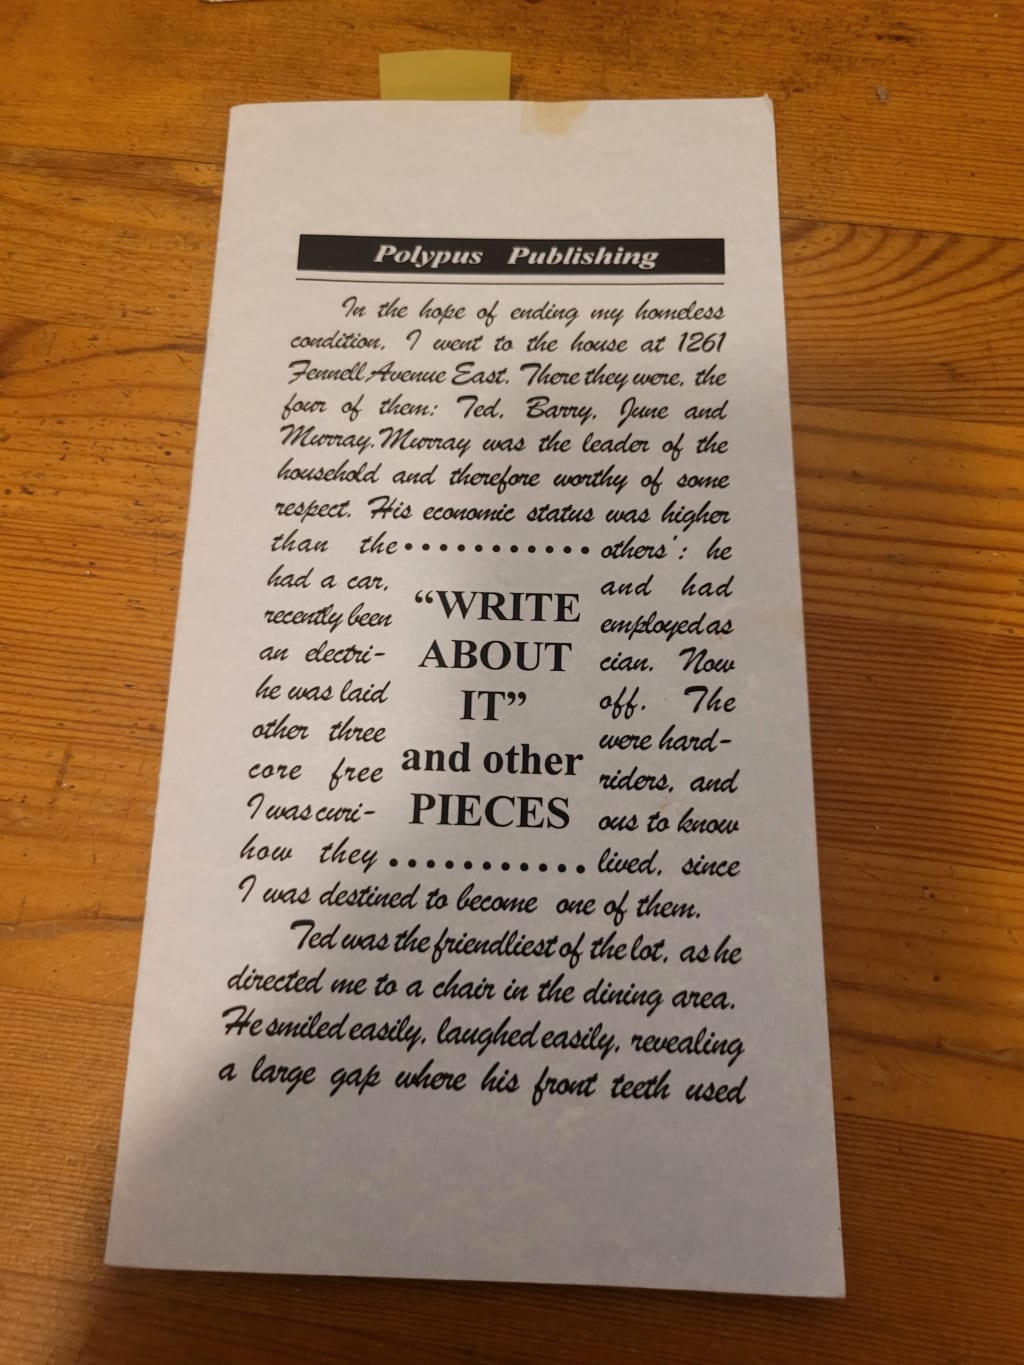 Polypus Publishing
In the hope of ending my homeless
condition, I went to the house at 1261
Fennell Avenue East. There they were, the
four of them: Ted, Barry, June and
Murray. Murray was the leader of the
household and therefore worthy of some
respect. His economic status was higher
than the ........... others': he
had a car, and had
recently been employed as
an electri- cian. Now
he was laid off. The
other three were hard-
core free riders, and
I was curi- ous to know
how they ........... lived, since
"WRITE
ABOUT
IT"
and other
PIECES
I was destined to become one of them.
Ted was the friendliest of the lot, as he
directed me to a chair in the dining area.
He smiled easily, laughed easily, revealing
a large gap where his front teeth used